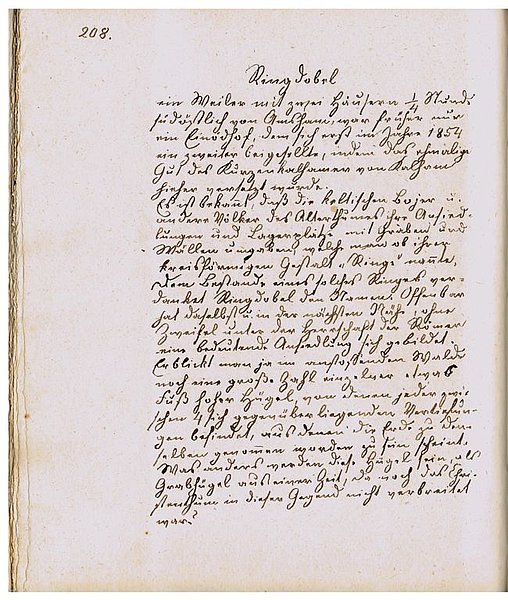 208.
Ringdobel
ein Weiler mit zwei Häusern 1/4 Stunde
südöstlich von Amsham, war früher nur
ein Einödhof, dem sich erst im Jahre 1854
ein zweiter beigesellte, indem das ehmalige
Gut des Kurzenkalhamer von Kalham
hieher versetzt wurde.
Es ist bekannt, daß die keltischen Bojer u.
andere Völker des Alterthumes ihre Ansied-
lungen und Lagerplätze mit Gräben und
Wällen umgaben, welche man ob ihrer
kreisförmigen Gestalt „Ringe" nannte.
Dem Bestande eines solches Ringes ver-
danket Ringdobel den Namen. Offenbar
hat daselbst u. in der nächsten Nähe, ohne
Zweifel unter der Herrschaft der Römer
eine bedeutende Ansiedlung sich gebildet.
Erblickt man ja im anstossenden Walde
noch eine große Zahl einzelner etwa 6
Fuß hoher Hügel, von denen jeder zwi-
schen 4 sich gegenüber liegenden Vertiefun-
gen befindet, aus denen die Erde zu dem-
selben genomen worden zu sein scheint.
Was anders werden diese Hügel sein, als
Grabhügel aus einer Zeit, da noch das Chri-
stenthum in dieser Gegend nicht verbreitet
war?